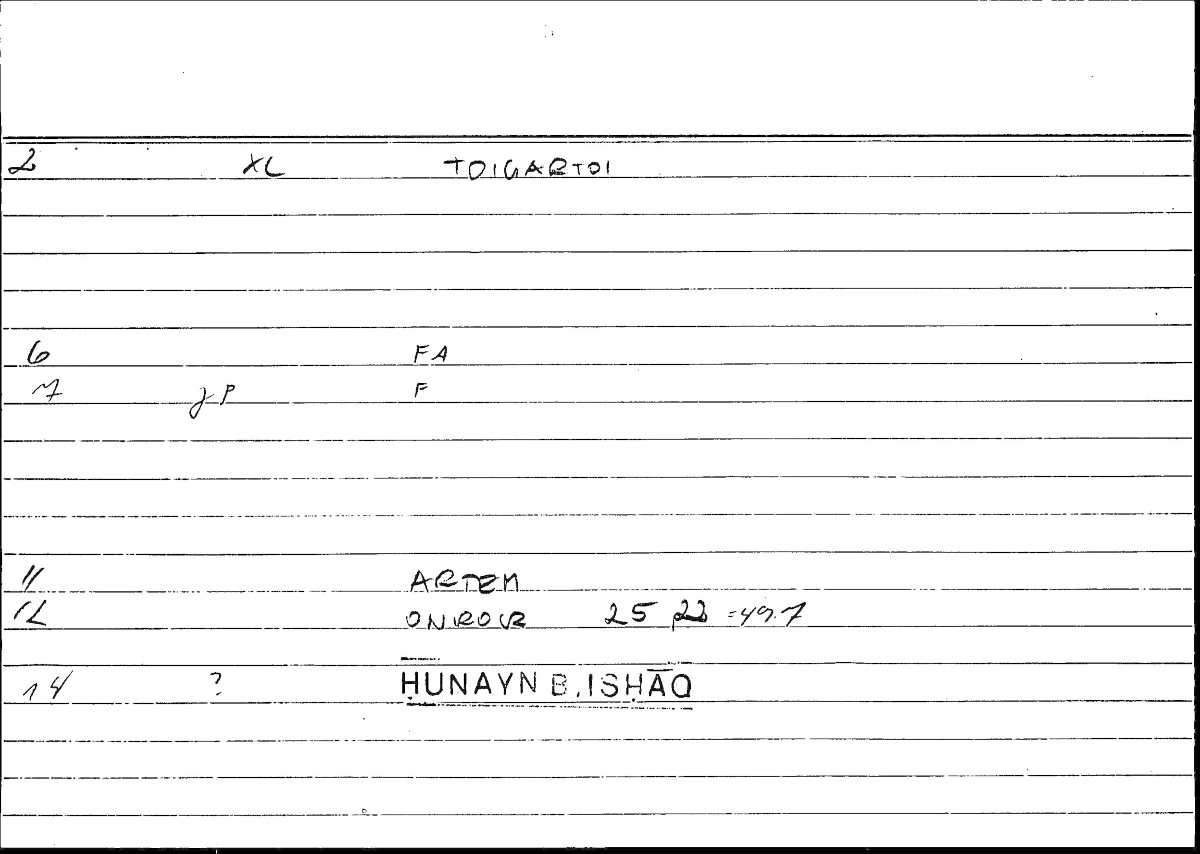 2 XL TOIGARTOI
6 FA
7 JP F
11 ARTEM
12 ONIROCR 25 22 = 49.7
14 ? ḤUNAYN B. ISḤĀQ